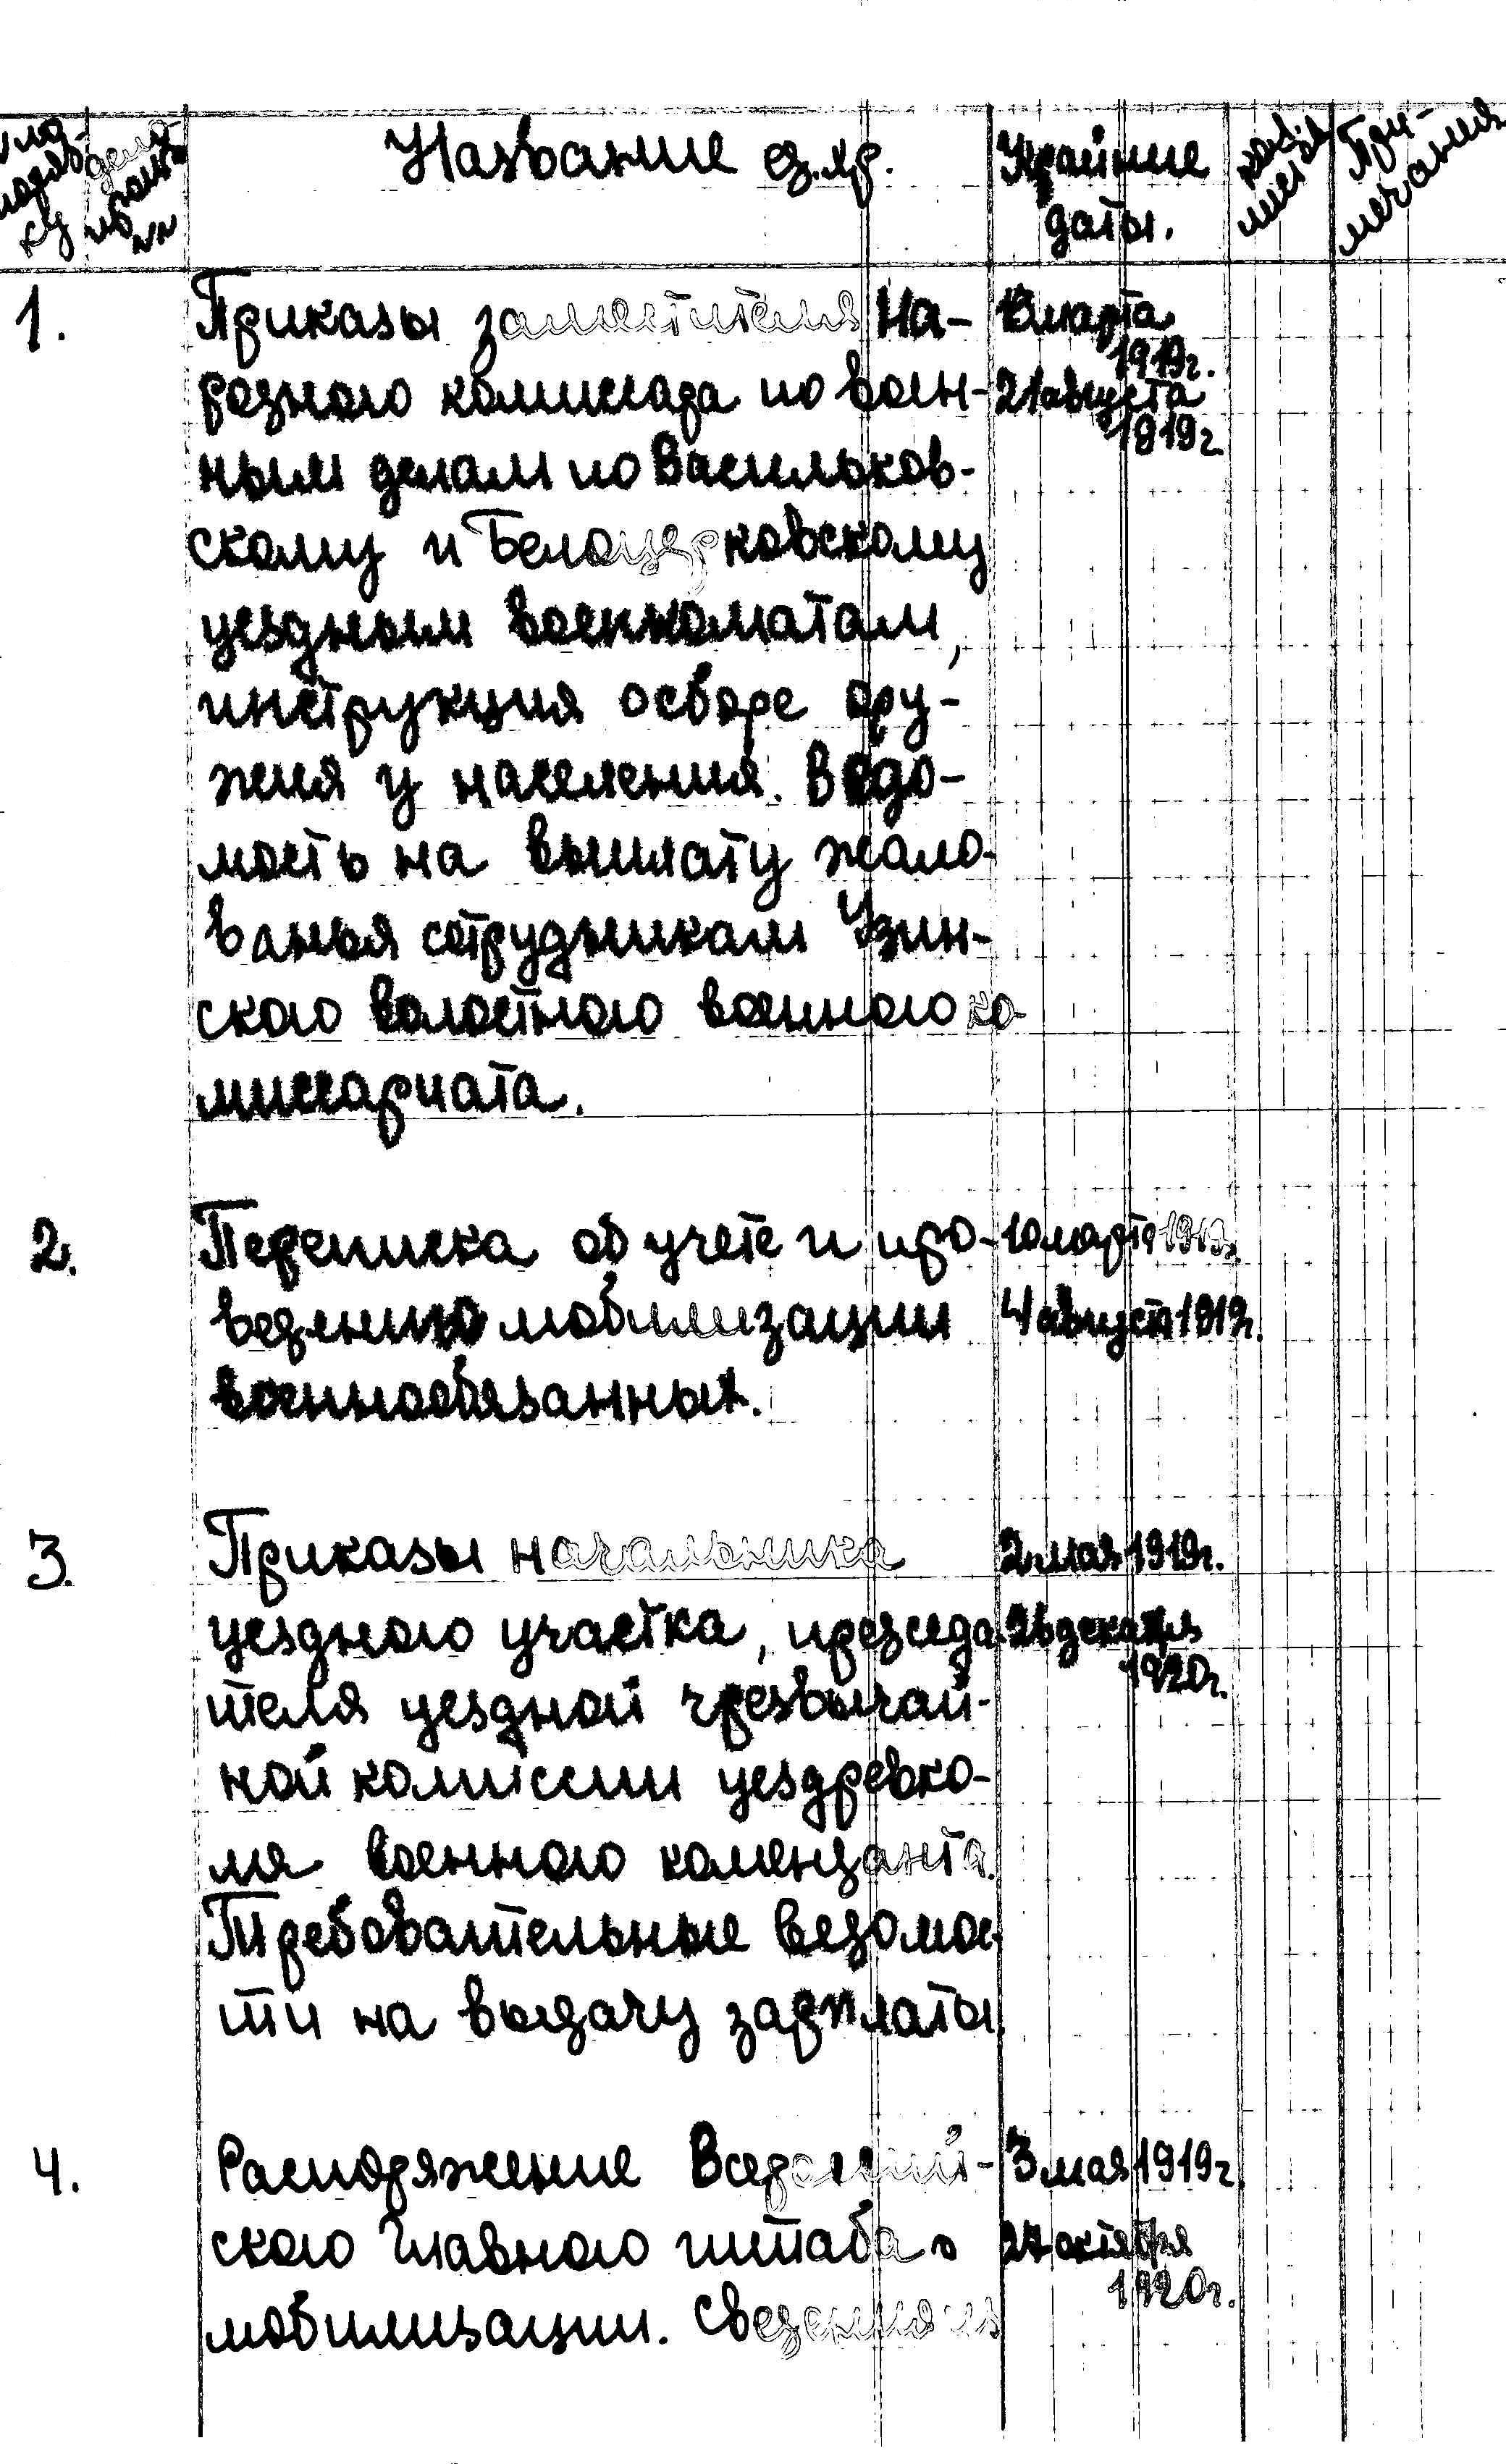 Название ед.хр.
Крайние
даты.
При-
мечания
1.
Приказы заместителя На-
родного комиссара по воен-
ным делам по Васильков-
скому и Белоцерковскому
уездным военкоматам,
инструкция о сборе ору-
жия у населения. Ведо-
мость на выплату жало-
ванья сотрудникам Узин-
ского волостного военного ко-
миссариата.
марта
1919г.
21 августа
1919г.
2.
Переписка об учете и про-
ведению мобилизации
военнообязанных.
10 марта 1919г.
4 август 1919г.
3.
Приказы начальника
уездного участка, председа-
теля уездной чрезвычай-
ной комиссии уездревко-
ма военного коменданта.
Требовательные ведомос-
ти на выдачу зарплаты.
2 мая 1919г.
26 декабря
1920г.
4.
Распоряжение Всеросий-
ского Главного штаба о
мобилизации. Сведения из
3 мая 1919г.
27 октября
1920г.